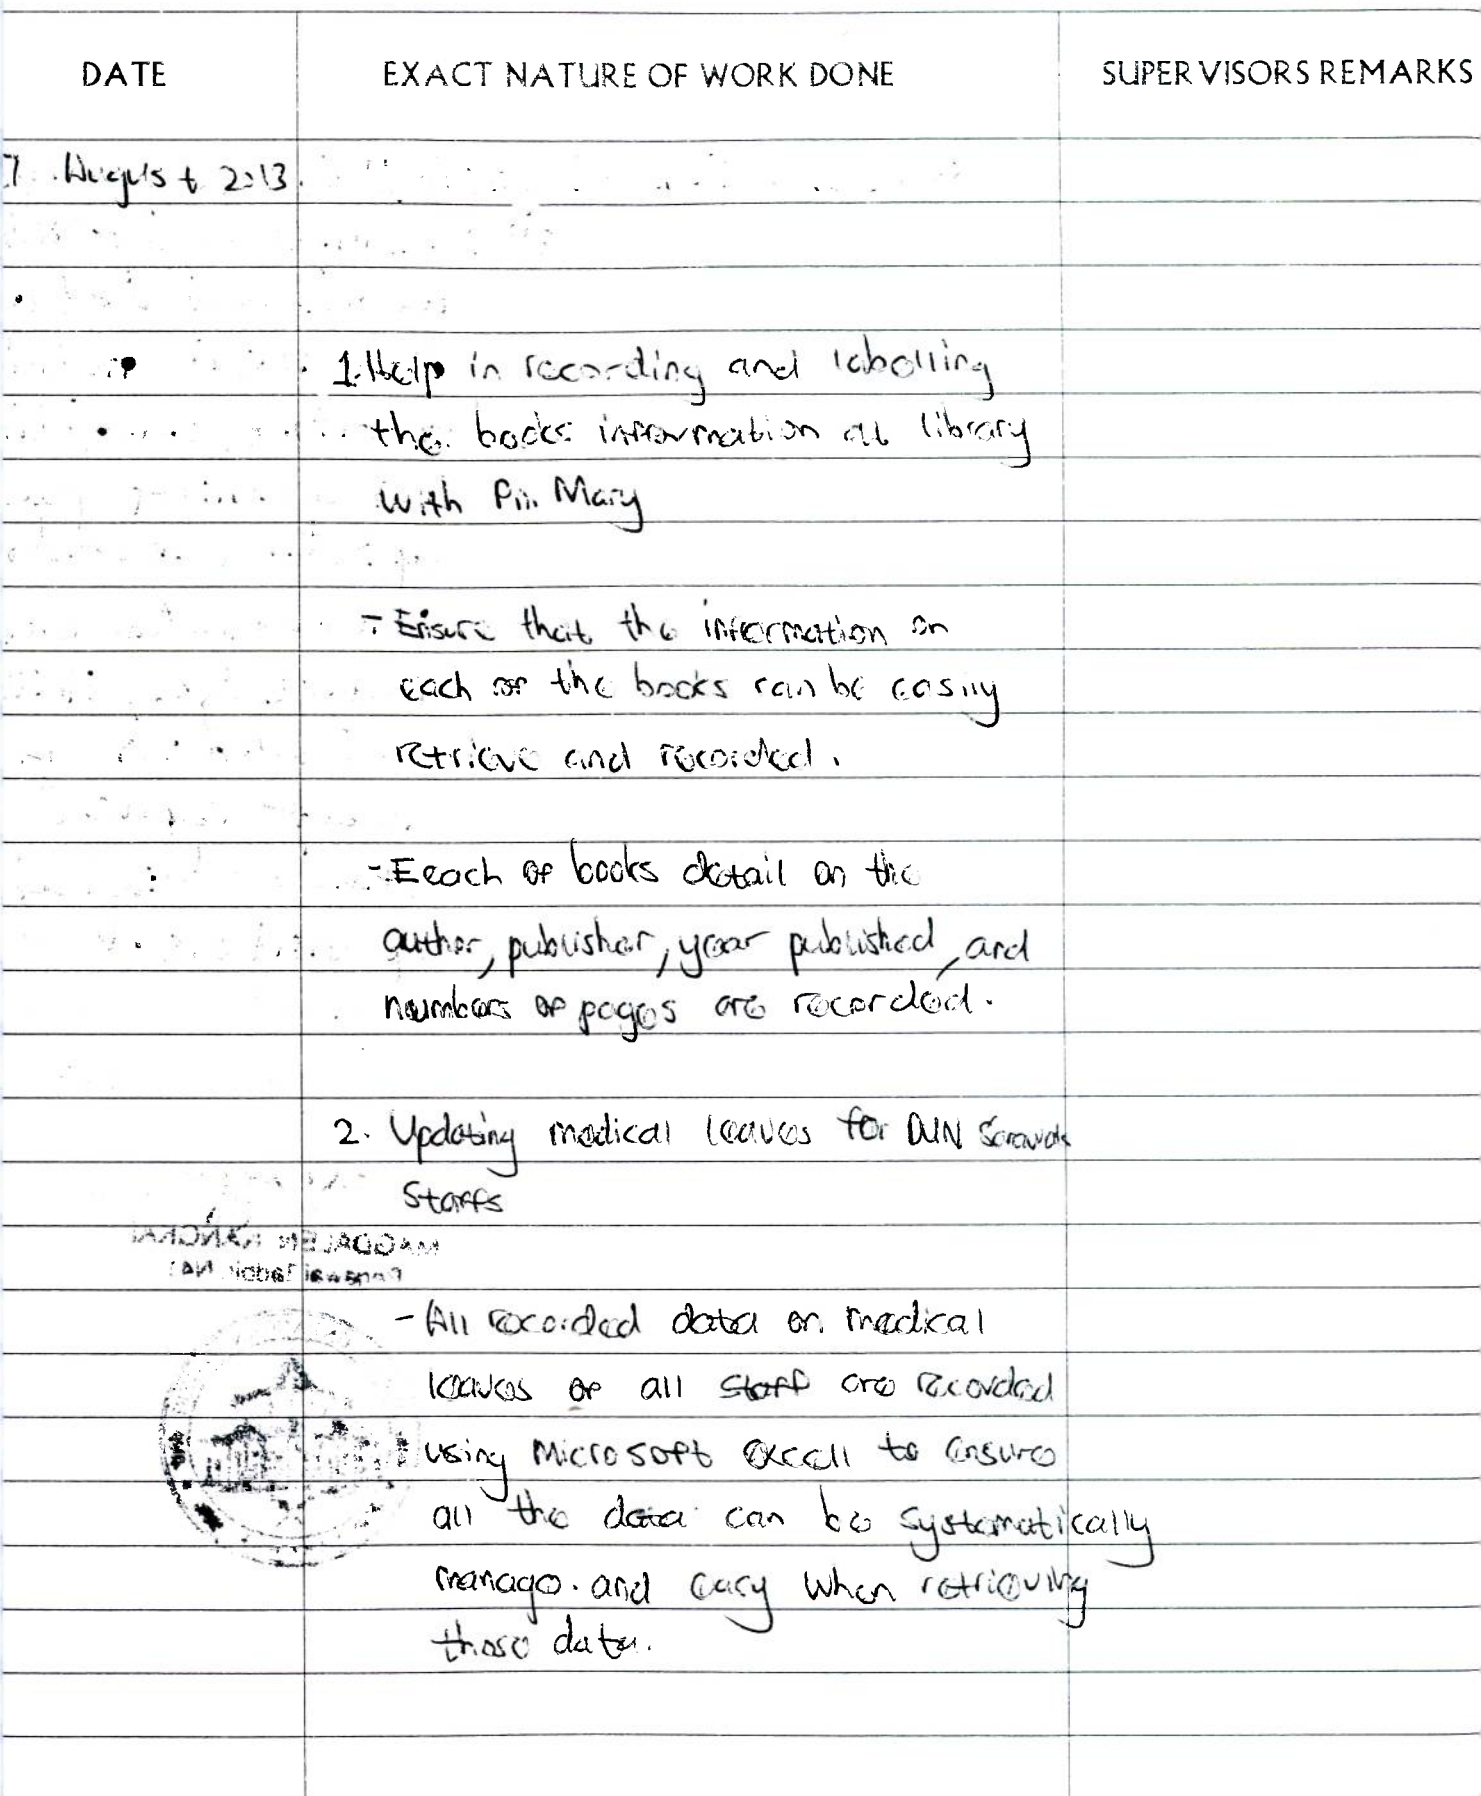 DATE EXACT NATURE OF WORK DONE SUPERVISORS REMARKS
7 August 2013
1. Help in recording and labelling
the books information at library
with Pn. Mary
- Ensure that the information on
each of the books can be easily
retrieve and recorded.
- Eeach of books detail on the
author, publisher, year published, and
numbers of pages are recorded.
2. Updating medical leaves for Sarawak
Staffs
MAGDALEN
- All recorded data on medical
leaves of all staff are recorded
using Microsoft excell to ensure
all the data can be systematically
manage. and easy when retrieving
those data.